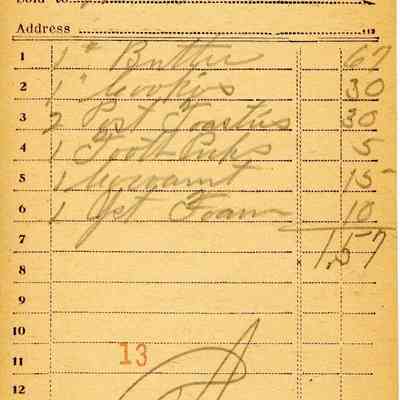 Sold to
Address
1 1 " Butter 67
2 1 " Cookies 30
3 2 Post Toasties 30
4 1 Tooth Picks 5
5 1 Cocoanut 15
6 1 Yst Foam 10
7 1.57
8
9
10
11 13
12